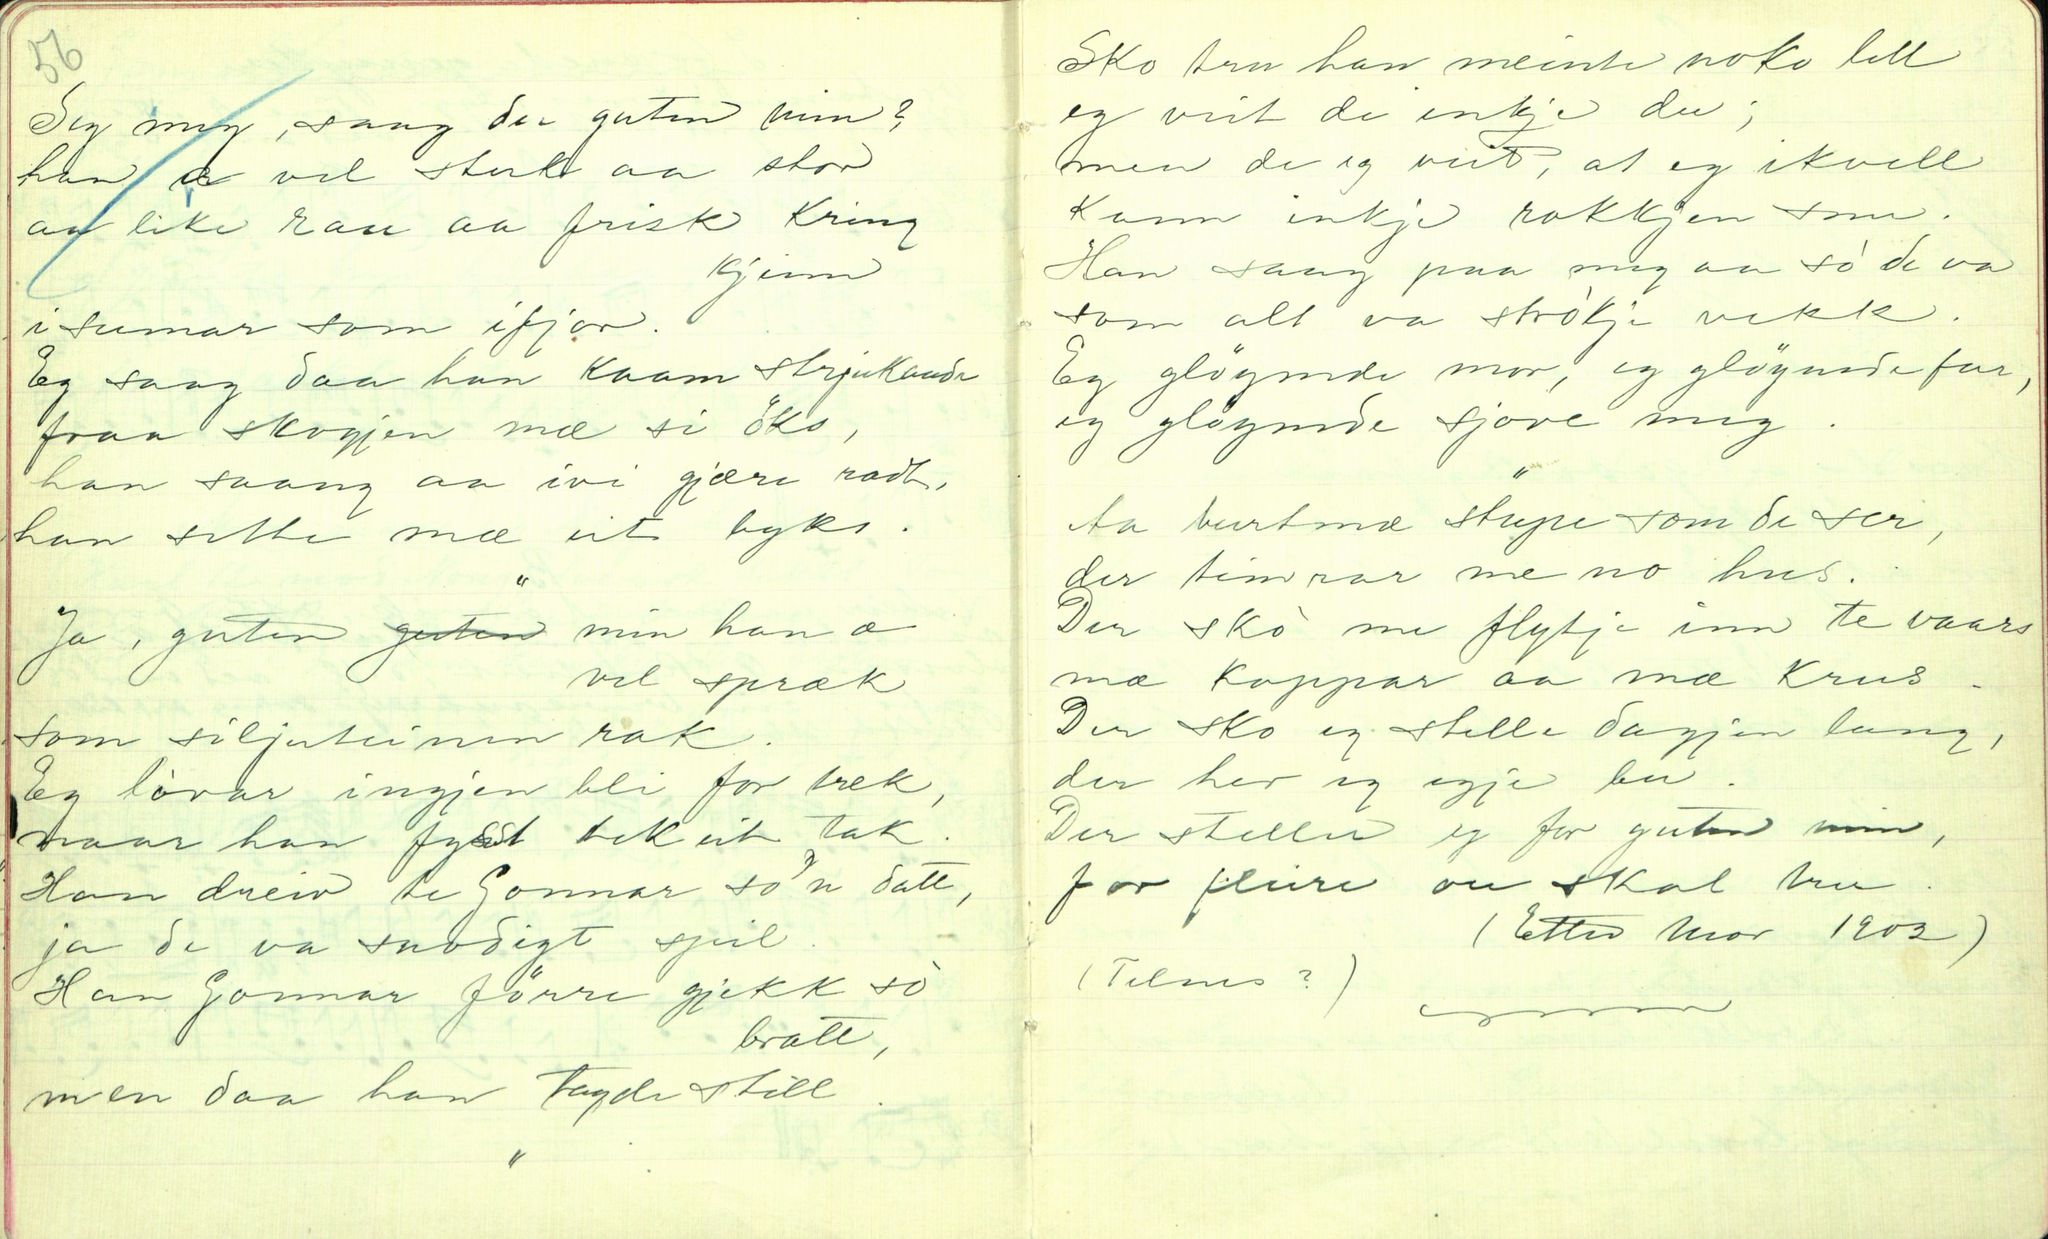 56
Seg meg, saag du guten min?
han æ vel sterk aa stor
aa like rau aa frisk kring
kjinn
i sumar som ifjor.
Eg saag daa han kaam strjukande
fraa skogjen mæ si öks,
han saang aa ivi gjære radt,
han sette mæ eit byks.
"
Ja, guten guten min han æ
vel spræk
som siljuteinen rak.
Eg lòvar ingjen bli for brek,
naar han fysst tek eit tak.
Han dreiv te Gonnar so'n datt,
ja de va snodigt spil.
Han Gonnar förre gjekk sò
bratt,
men daa han tagde still.
"
Sko tru han meinte noko lell
eg veit de inkje du;
men de eg veit, at eg ikvell
kunn inkje rokkjen snu.
Han saag paa meg aa sò de va
som alt va stròkje vekk.
Eg glöymde mor, eg glöymde far,
eg glöymde sjøve meg.
"
Aa burtmæ stupe som de ser,
der timrar me no hus.
Der skò me flytje inn te vaars
mæ koppar aa mæ krus.
Der sko eg stelle dagjen lang,
der her eg egje bu.
Der steller eg for guten min,
for fleire ou skal tru.
(Etter Mor 1902)
(Telnes?)